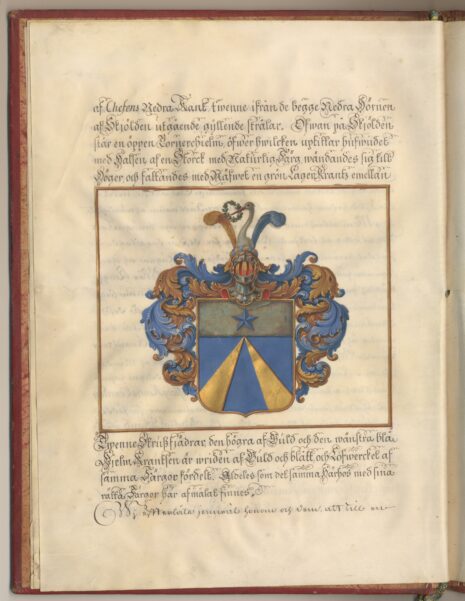 af Chefens Nedra Kant twenne ifrån de begge Nedra Hörnen
af Skjölden utgående gyllende strålar. Ofwan på Skjölden
står en öppen Tornerhielm, öfwer hwilcken uptillar hufwudet
med Halsen af en Storck med Naturlig Färg wändandes sig till
Höger och fattandes med Näfwet en grön Lager Krantz emellan
Twenne Strußfjädrar, den högra af Guld och den wänstra blå.
Hielm Krantsen är wriden af Guld och blått och Löfwercket af
samma Färgor fördelt. Aldeles som det samma härhos med sina
rätta Färgor här afmålat finnes.
honom och dem, att till